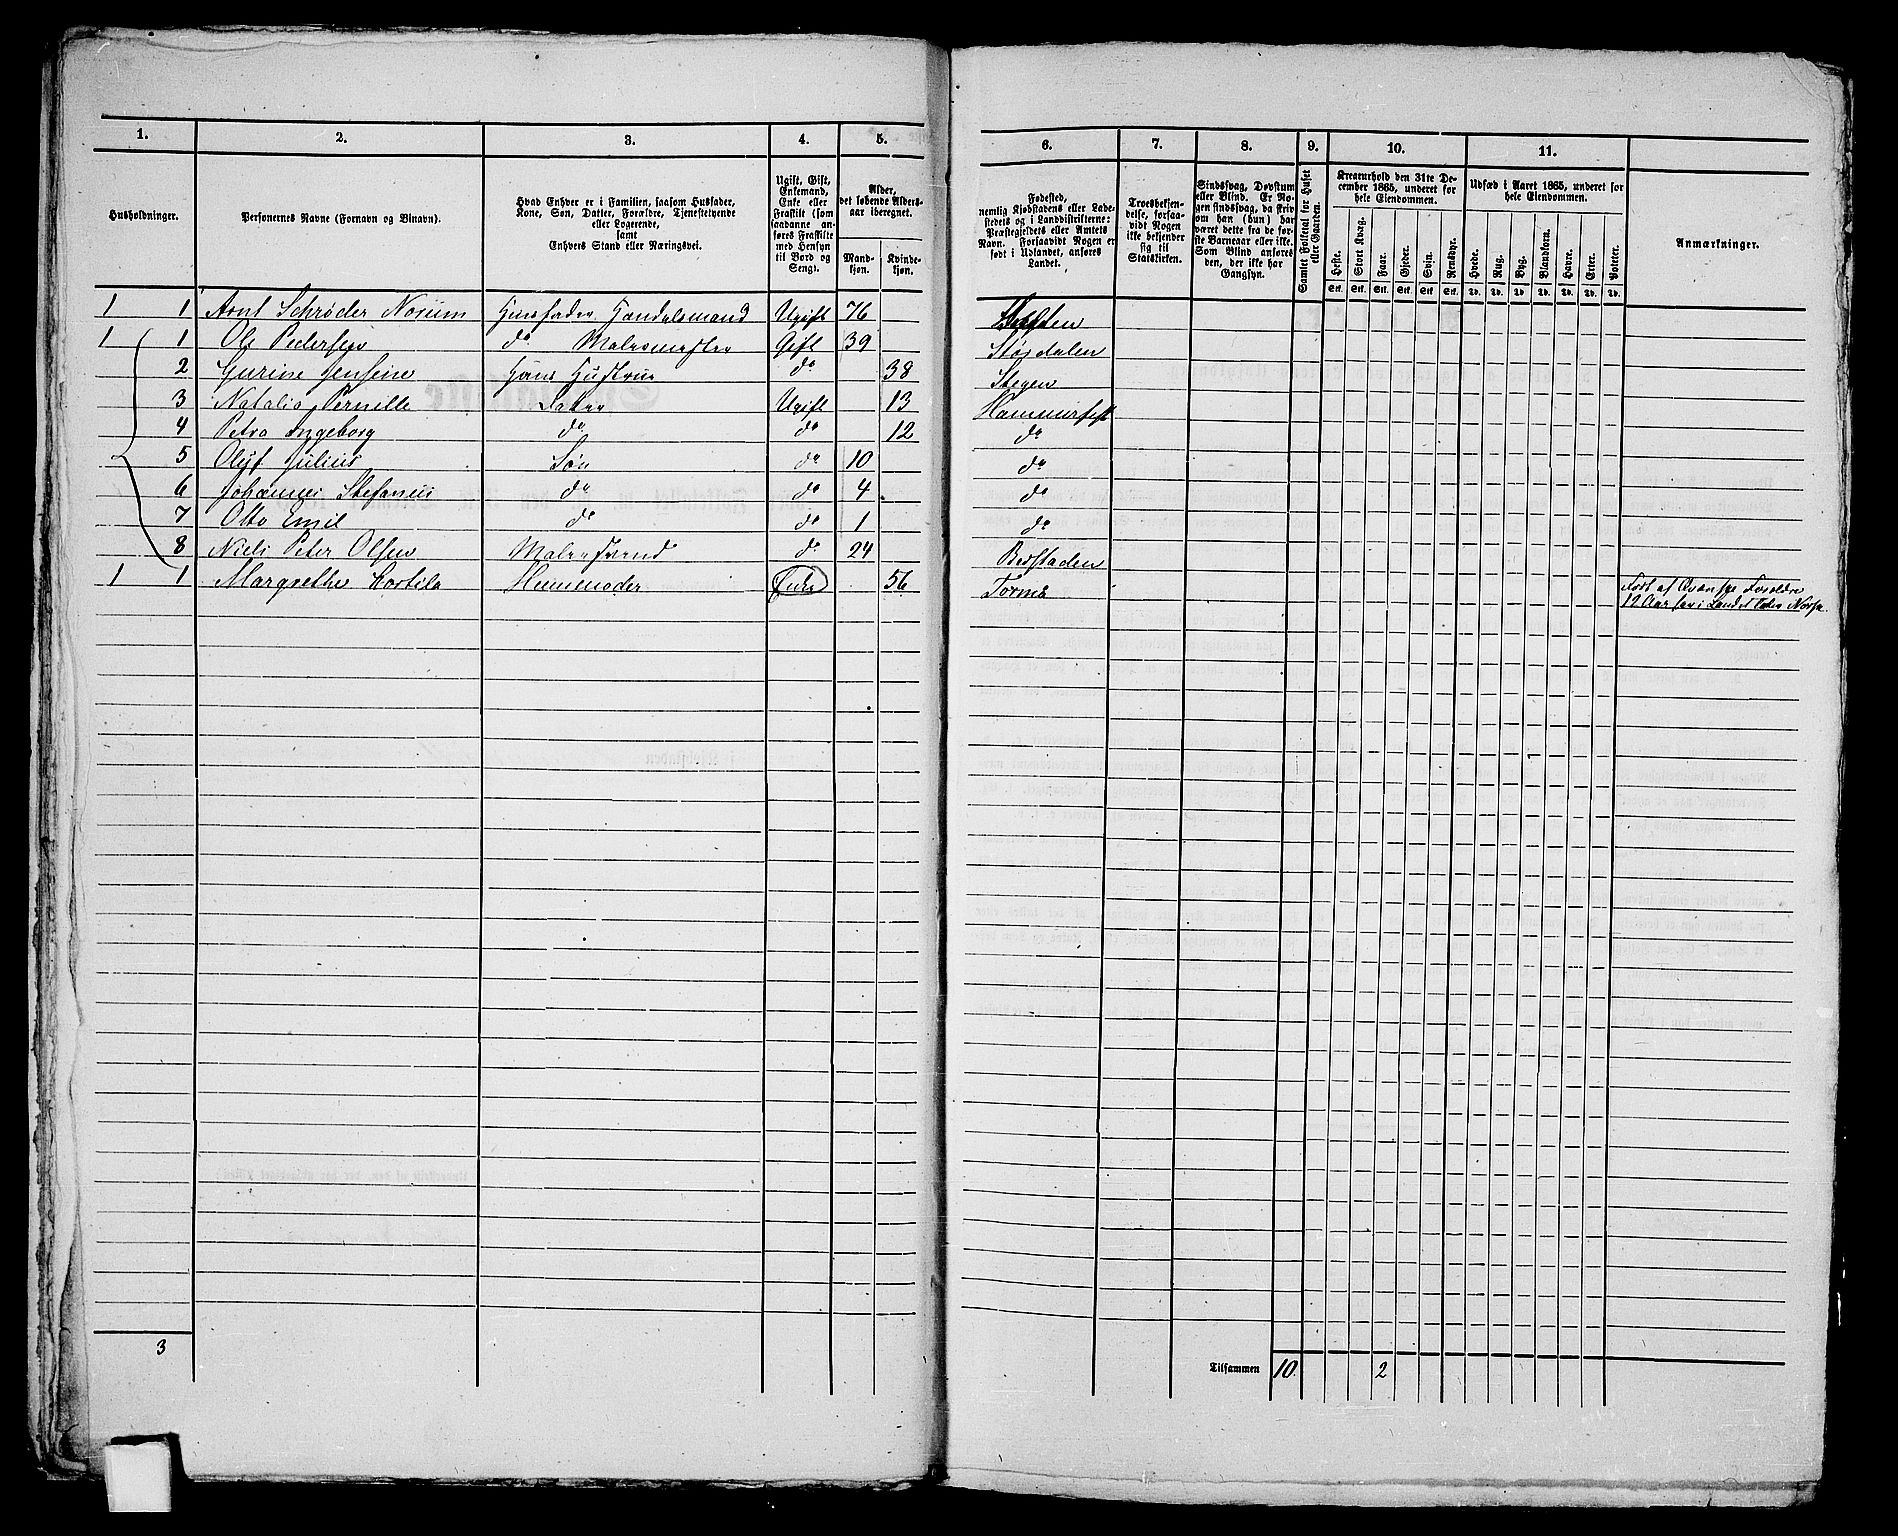 1. 2. 3. 4. 5. 6. 7. 8. 9. 10. 11.
Husholdninger.
Personernes Navne (Fornavn og Binavn).
Hvad Enhver er i Familien, saasom Husfader,
Kone, Søn, Datter, Forældre, Tjenestetyende
eller Logerende,
samt
Enhvers Stand eller Næringsvei.
Ugift, Gift,
Enkemand,
Enke eller
Fraskilt (som
saadanne an-
føres Fraskilte
med Hensyn
til Bord og
Seng).
Alder,
det løbende Alders-
aar iberegnet.
Mand-
kjøn.
Kvinde-
kjøn.
Fødested,
nemlig Kjøbstadens eller Lade-
stedets og i Landdistrikterne:
Præstegjeldets eller Amtets
Navn. Forsaavidt Nogen er
født i Udlandet, anføres
Landet.
Troesbekjen-
delse, forsaa-
vidt Nogen
ikke bekjender
sig til
Statskirken.
Sindssvag, Døvstum
eller Blind. Er No-
gen sindssvag, da skriv
om han (hun) har
været dette fra de før-
ste Barneaar eller ikke.
Som Blind anføres
den, der ikke har
Gangsyn.
Samlet Folketal for Huset
eller Gaarden.
Kreaturhold den 31te De-
cember 1865, underet for
hele Eiendommen.
Heste. Stort Kvæg. Faar. Gjeder. Svin. Rensdyr.
Stk. Stk. Stk. Stk. Stk Stk.
Udsæd i Aaret 1865, underet for
hele Eiendommen.
Hvede. Rug. Byg. Blandkorn. Havre. Erter. Poteter.
Td. Td. Td Td. Td. Td. Td.
Anmærkninger.
1 1 Arnt Schrøder Norum Husfader Handelsmand Ugift 76
1 1 Ole Pedersen do Malermester Gift 39 Størdalen
2 Gurine Jensine Hans Hustrue do 38 Stegen
3 Natalia Pernille Datter Ugift 13 Hammerfest
4 Petra Ingeborg do do 12 do
5 Oluf Julius Søn do 10 do
6 Johannes Stefanus do do 4 do
7 Otto Emil do do 1 do
8 Niels Peter Olsen Malersvend do 24 Beitstaden
1 1 Margrethe Huusmoder Enke 56 Torneå Født af Qvænske Forældre
12 Aar i Landet
3
Tilsammen 10 2